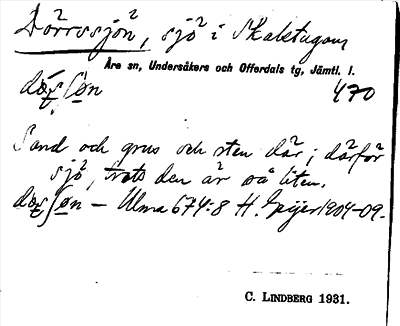 Dörrsjön, sjö i Skalstugans
Åre sn, Undersåkers och Offerdals tg, Jämtl. l.
470
Sand och grus och sten där; därför
sjö, trots den är så liten.
– Ulma 674:8 H. Geijer 1904-09.
C. LINDBERG 1931.